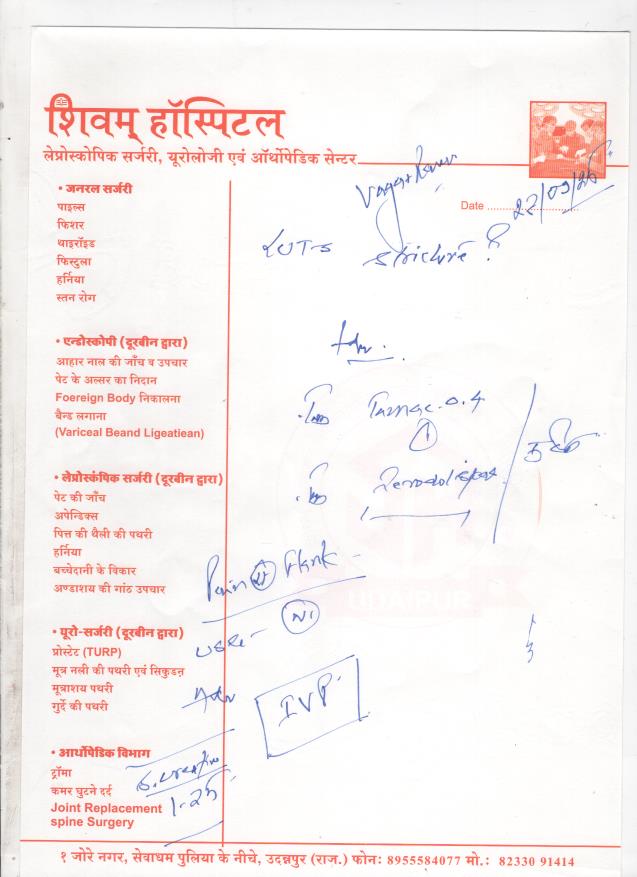 शिवम् हॉस्पिटल
लेप्रोस्कोपिक सर्जरी, यूरोलोजी एवं ऑर्थोपेडिक सेन्टर
Date 22/09/25
• जनरल सर्जरी
पाइल्स
फिशर
थाइरॉइड
फिस्टुला
हर्निया
स्तन रोग
LUTS stricture ?
Adv.
• एन्डोस्कोपी (दूरबीन द्वारा)
आहार नाल की जाँच व उपचार
पेट के अल्सर का निदान
Foereign Body निकालना
बैन्ड लगाना
(Variceal Beand Ligeatiean)
0.4
• लेप्रोस्कंपिक सर्जरी (दूरबीन द्वारा)
पेट की जाँच
अपेन्डिक्स
पित्त की थैली की पथरी
हर्निया
बच्चेदानी के विकार
अण्डाशय की गांठ उपचार
Pain Flank
UDAIPUR
• यूरो-सर्जरी (दूरबीन द्वारा)
प्रोस्टेट (TURP)
मूत्र नली की पथरी एवं सिकुडऩ
मूत्राशय पथरी
गुर्दे की पथरी
USG - Nl
Adv IVP
• आर्थोपेडिक विभाग
ट्रॉमा
कमर घुटने दर्द
Joint Replacement
spine Surgery
1.25
१ जोरे नगर, सेवाधम पुलिया के नीचे, उदन्नपुर (राज.) फोन: 8955584077 मो.: 82330 91414